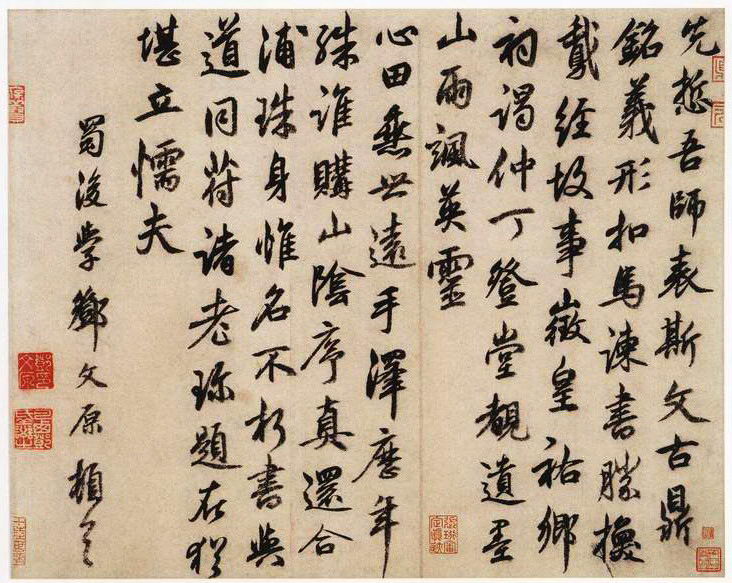 先哲吾師表斯文古鼎
銘義形扣馬諫書勝換
鵞經故事徵皇祐鄉
祠謁仲丁登堂覩遺墨
山雨颯英靈
心田垂世遠手澤歷年
殊誰購山陰序真還合
浦珠身惟名不朽書與
道同符諸老珍題在猶
堪立懦夫
蜀後學鄧文原頓首